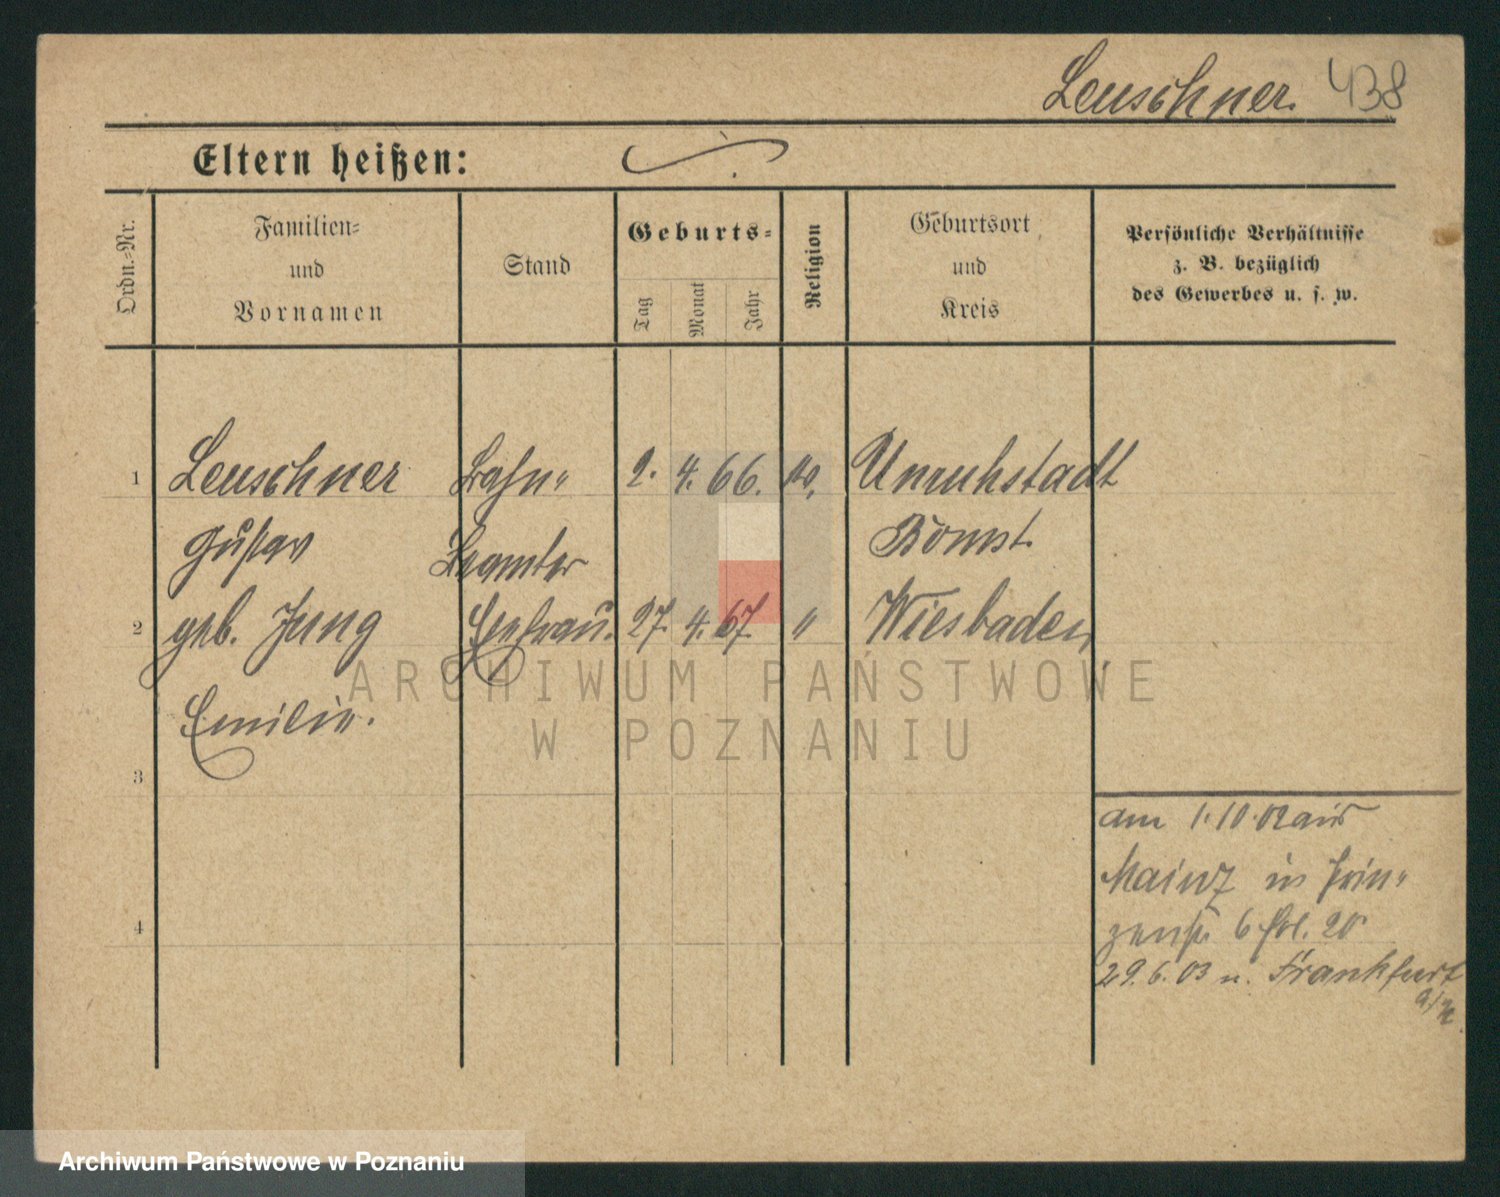 Leuschner. 438
Eltern heißen:
Ordn.=Nr.
Familien=
und
Vornamen
Stand
Geburts=
Tag
Monat
Jahr
Religion
Geburtsort
und
Kreis
Persönliche Verhältnisse
z. B. bezüglich
des Gewerbes u. s. w.
1 Leuschner Bahn" 2. 4. 66. Unruhstadt
Gustav Beamter Bomst.
2 geb. Jung Ehefrau. 27. 4. 67. " Wiesbaden
Emilie.
3
am 1.10.02 aus
Mainz in Prin"
zenstr 6 Pol. 20
4
29.6.03 n. Frankfurt
a/M.
ARCHIWUM PAŃSTWOWE
W POZNANIU
Archiwum Państwowe w Poznaniu